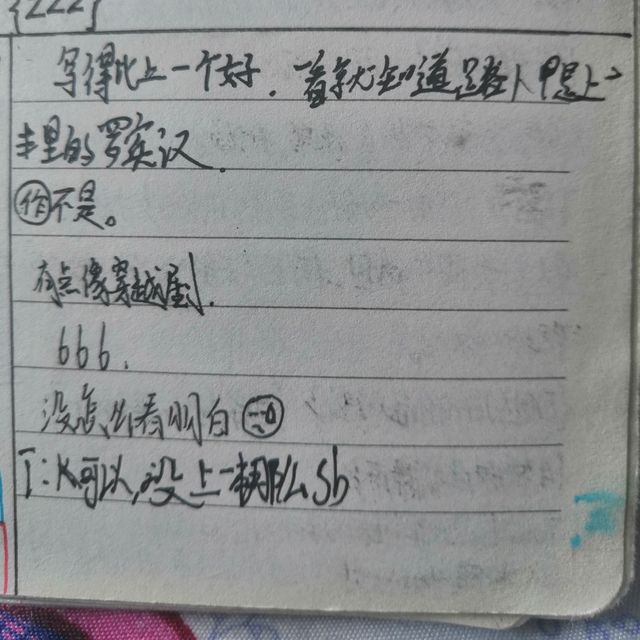 {222}
写得比上一个好。一看就知道路人甲是上
丰里的罗宾汉。
作不是。
有点像穿越剧。
666.
没怎么看明白
T: K可以,没上一棒那么sb